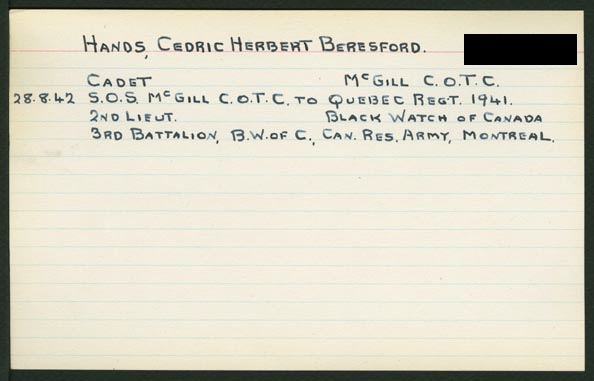 HANDS, CEDRIC HERBERT BERESFORD.
CADET McGILL C.O.T.C.
28.8.42 S.O.S. McGILL C.O.T.C. TO QUEBEC REGT. 1941.
2ND LIEUT. BLACK WATCH OF CANADA
3RD BATTALION, B.W. OF C., CAN. RES. ARMY, MONTREAL.